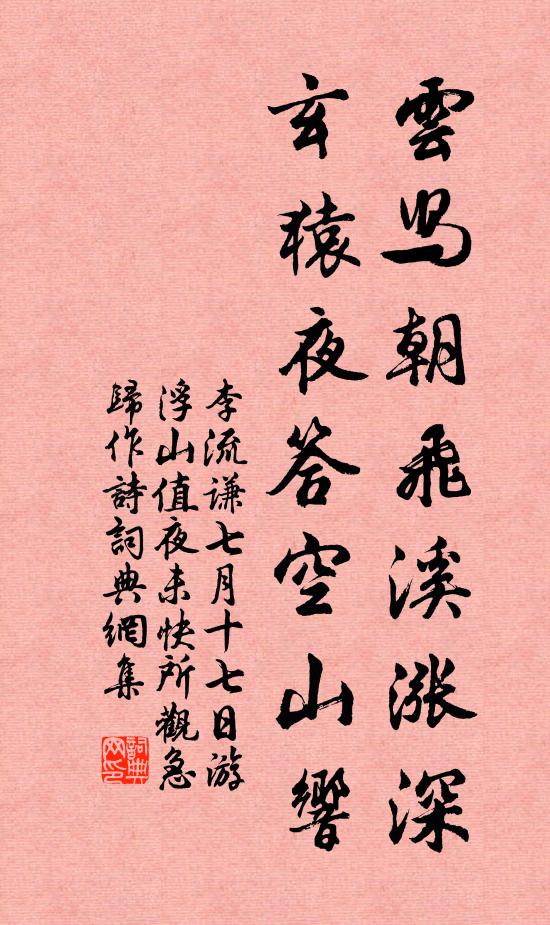 雲鳥朝飛溪漲深
玄猿夜答空山響
李流謙七月十七日游
浮山值夜未快所觀急
歸作詩詞典網集
詞典
网印